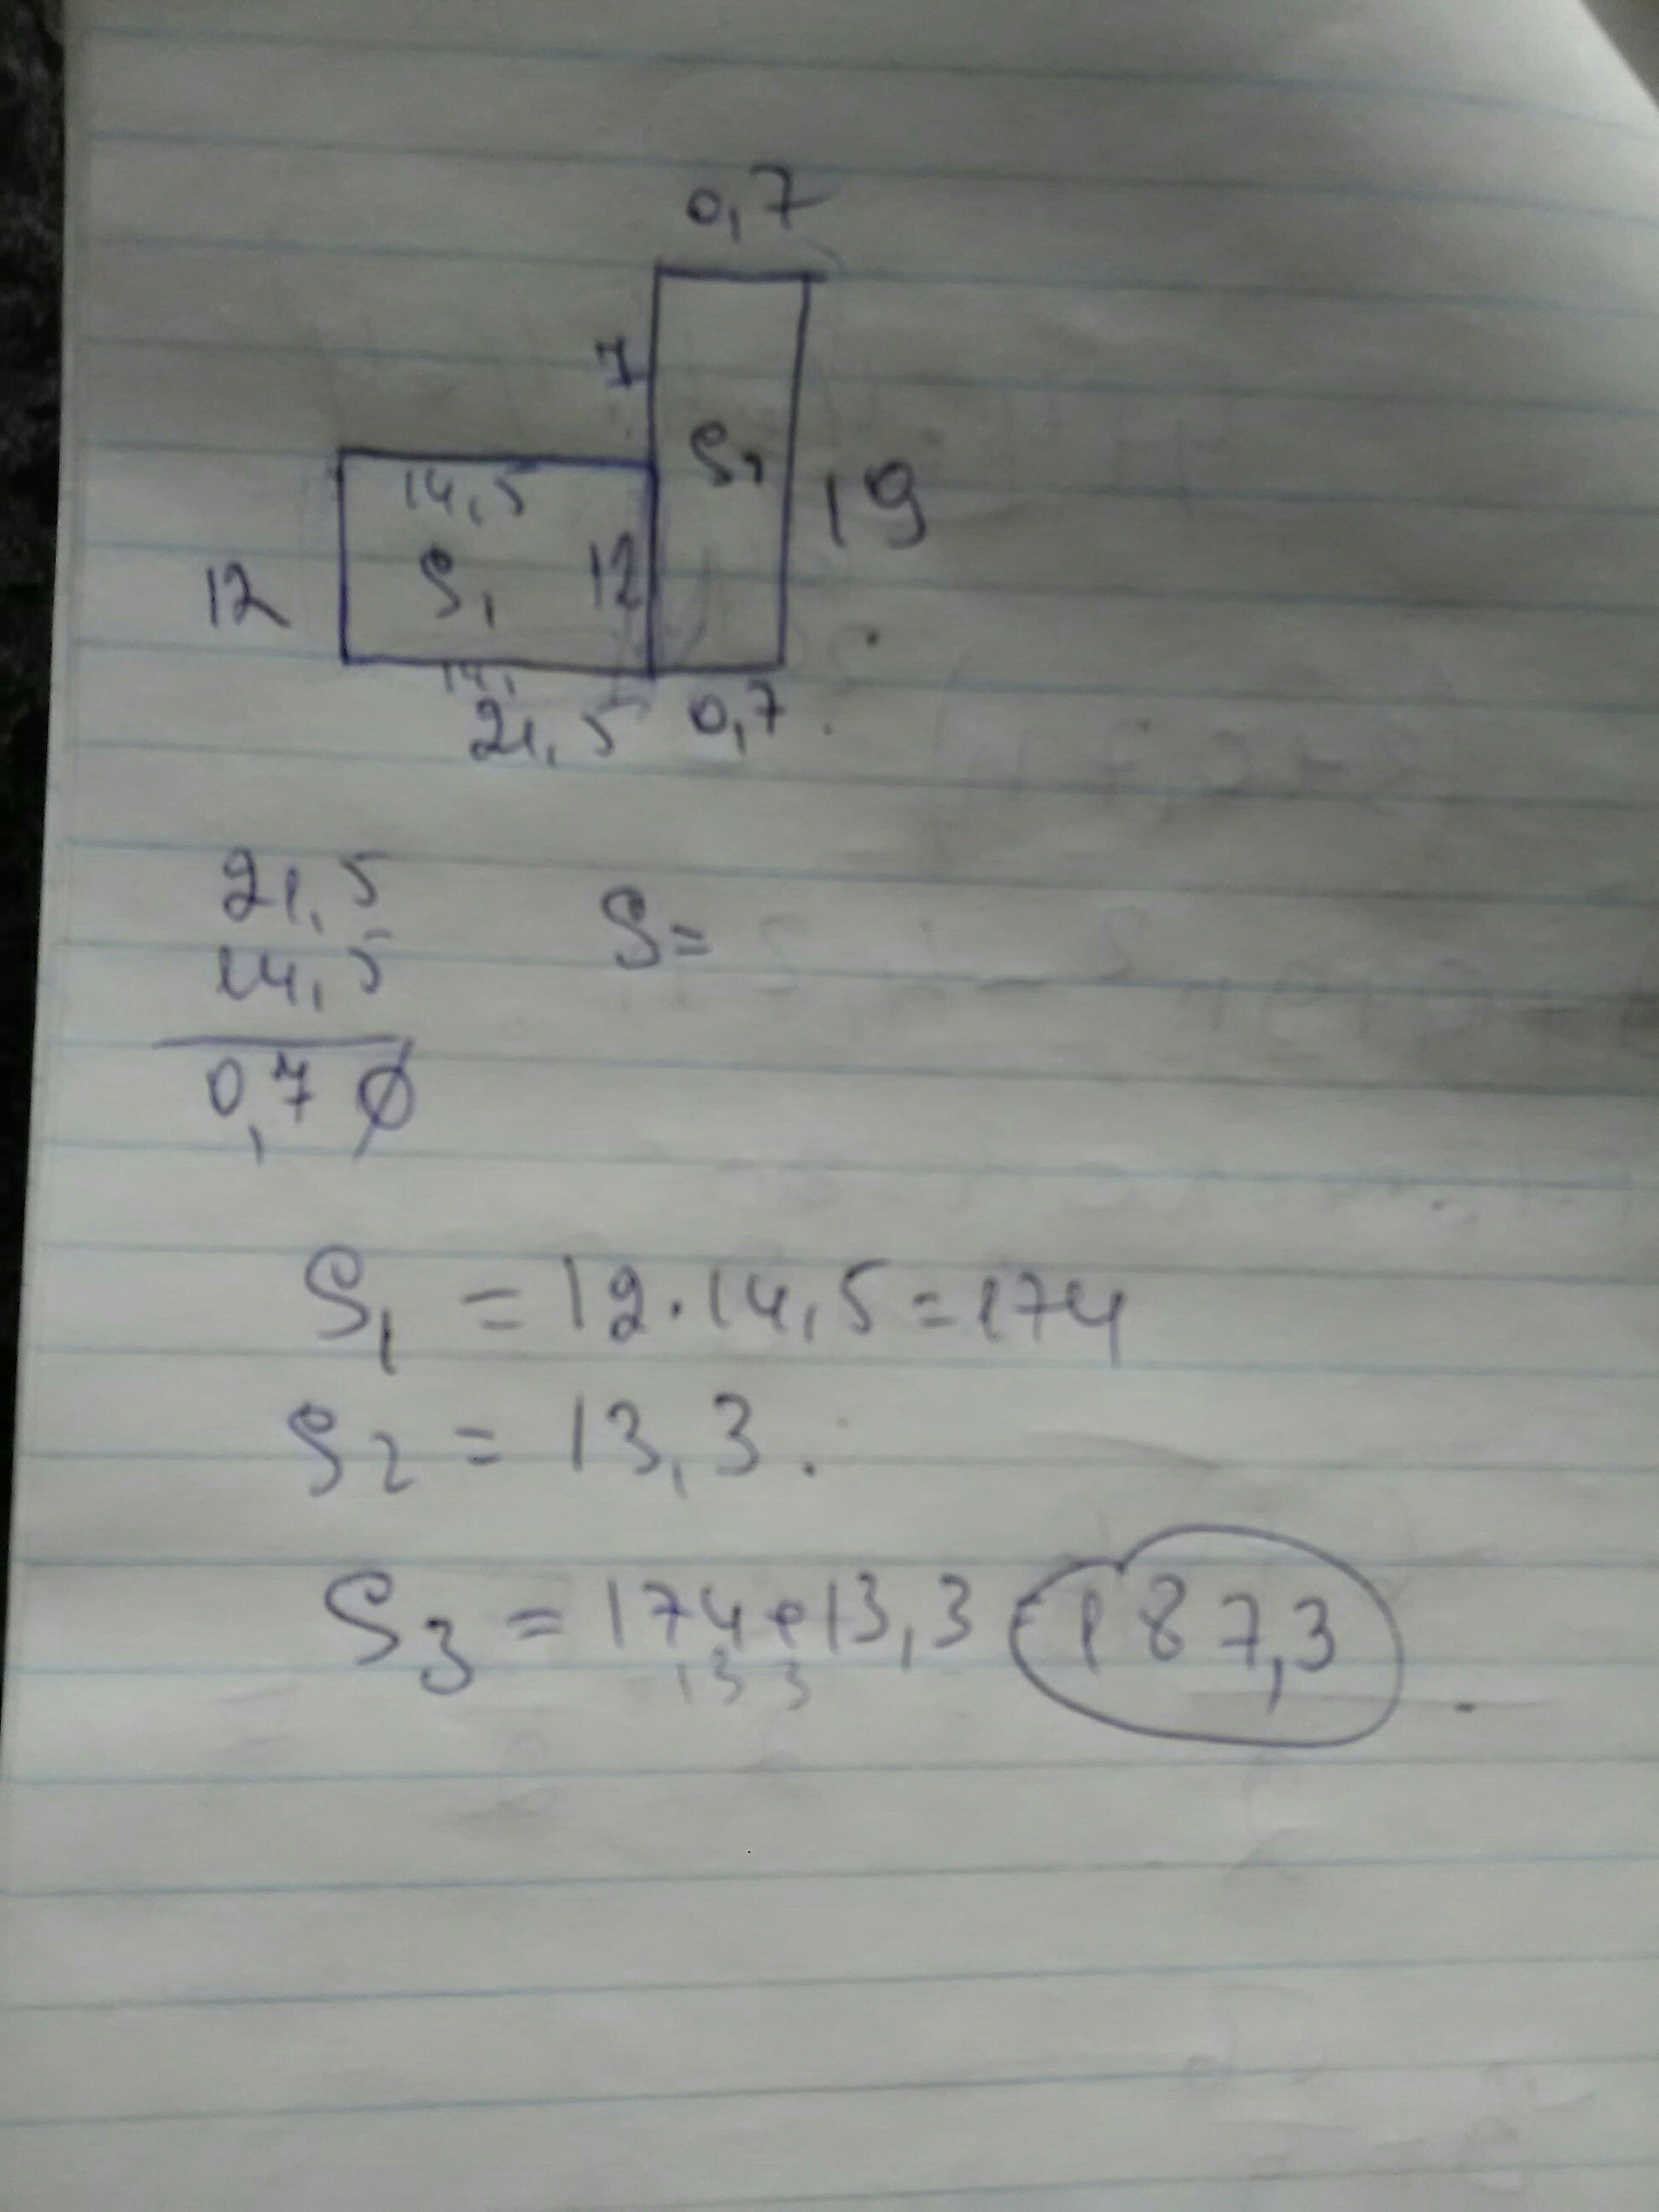 0,7
7
14,5
S₁
12
12
19
21,5
0,7
21,5
S=
14,5
0,7 0
S₁ = 12·14,5=174
S₂ = 13,3.
S₃ = 174+13,3 = 187,3
13 3